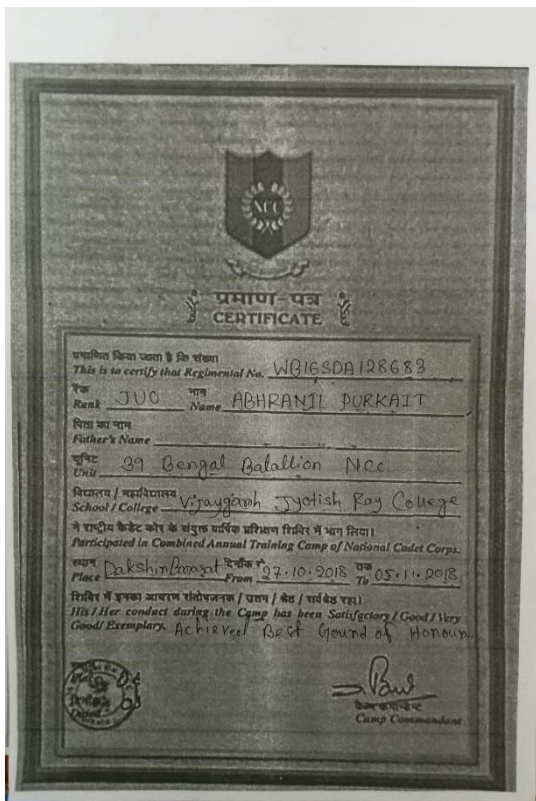 NCC
प्रमाण-पत्र
CERTIFICATE
प्रमाणित किया जाता है कि संख्या
This is to certify that Regimental No. WB16SDA128683
रैंक नाम
Rank JUO Name ABHRANIL PURKAIT
पिता का नाम
Father's Name
यूनिट
Unit 39 Bengal Batallion NCC
विद्यालय / महाविद्यालय
School / College Vijaygarh Jyotish Ray College
ने राष्ट्रीय कैडेट कोर के संयुक्त वार्षिक प्रशिक्षण शिविर में भाग लिया।
Participated in Combined Annual Training Camp of National Cadet Corps.
स्थान दिनाँक से तक
Place Dakshin Barasat From 27.10.2018 To 05.11.2018
शिविर में इनका आचरण संतोषजनक / उत्तम / श्रेष्ठ / सर्वश्रेष्ठ रहा।
His / Her conduct during the Camp has been Satisfactory / Good / Very
Good / Exemplary. Achieved Best Gound of Honour
Dated
कैम्प कमान्डेन्ट
Camp Commandant